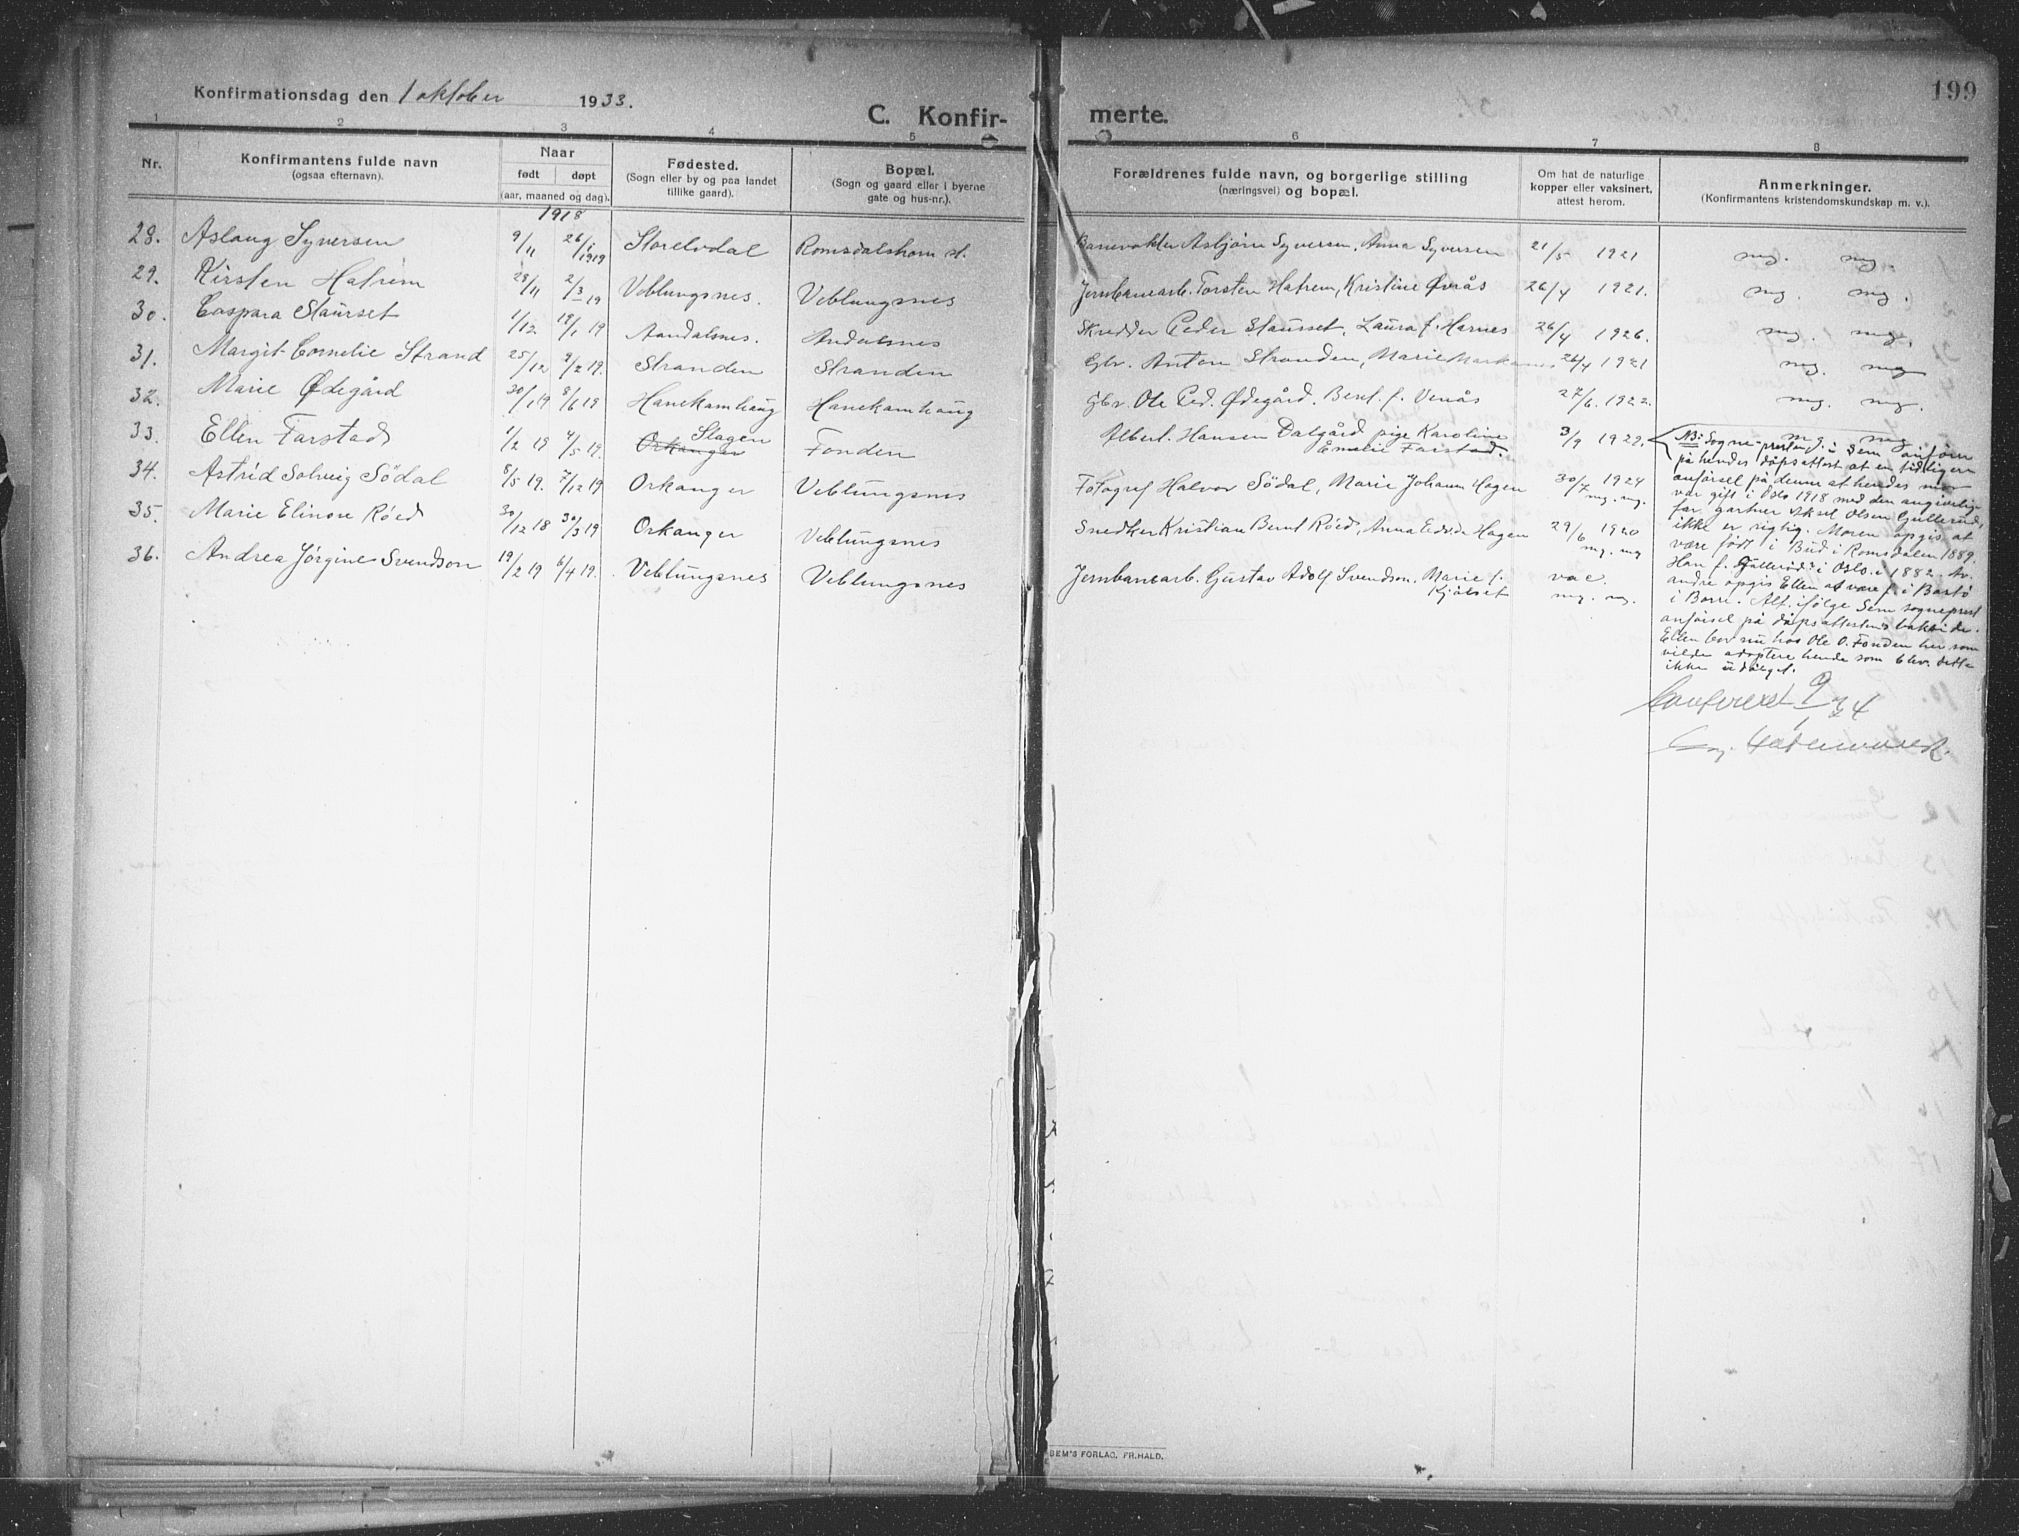 Konfirmationsdag den 1 oktober 1933.
C. Konfir-
merte.
199
1 2 3 4 5 6 7 8
Nr.
Konfirmantens fulde navn
(ogsaa efternavn).
Naar
født døpt
(aar, maaned og dag).
Fødested.
(Sogn eller by og paa landet
tillike gaard).
Bopæl.
(Sogn og gaard eller i byerne
gate og hus-nr.).
Forældrenes fulde navn, og borgerlige stilling
(næringsvei) og bopæl.
Om hat de naturlige
kopper eller vaksinert,
attest herom.
Anmerkninger.
(Konfirmantens kristendomskundskap m. v.).
1918
28. Aslaug Syversen 9/11 26/1 1919 Storelvdal Romsdalshorn st. Banevokter Asbjørn Syversen, Anna Syversen 21/5 1921 mg. mg.
29. Kirsten Hatrem 28/11 2/3 19 Veblungsnes. Veblungsnes Jernbanearb. Torsten Hatrem, Kristine Øvrås 26/4 1921. mg. mg.
30. Caspara Staurset 1/12 19/1 19 Aandalsnes. Andalsnes Skredder Peder Staurset, Laura f. Harnes 26/4 1926. mg. mg.
31. Margit Cornelie Strand 25/12 9/2 19. Stranden Stranden Gbr. Anton Stranden, Marie 26/4 1921 mg. mg
32. Marie Ødegård 30/1 19 8/6 19 Hanekamhaug Hanekamhaug Gbr. Ole Ped. Ødegård, Bernt. f. Venås 27/6. 1922. mg. mg.
33. Ellen Farstad 1/2 19 4/5 19. Orkanger Slagen Fonden Albert Hansen Dalgård pige Karoline 3/9 1929. mg. mg
Emelie Farstad.
34. Astrid Solveig Södal 8/5 19. 7/12 19 Orkanger Veblungsnes Fotograf Halvor Södal, Marie Johann Hagen 30/7 1924
mg. mg.
35. Marie Elinore Röed 30/12 18 30/3 19 Orkanger Veblungsnes Snedker Kristian Bernt Röed, Anna Hagen 29/6 1920
mg. mg
36. Andrea Jörgine Svendson 19/2 19 6/4 19. Veblungsnes Veblungsnes Jernbanearb. Gustav Adolf Svendson, Marie f. vac.
Kjölset mg. mg.
NB: Sognepresten i Sem anfører
på hendes dåpsattest at en tidligere
anførsel på denne at hendes mor
var gift i Oslo 1918 med den angivelige
far, gartner Aksel Olsen Gullerud,
ikke er rigtig. Moren opgis at
være født i Bud i Romsdalen 1889.
Han f. i Oslo i 1882. Av
andre opgis Ellen at være f. i Bastö
i Borre. Alt ifölge Sem sogneprest
anførsel på dåpsattestens bakside.
Ellen bor nu hos Ole O. Fonden her som
vilde adoptere hende som blev dette
ikke
Konfereret
BEM'S FORLAG, FR. HALD.